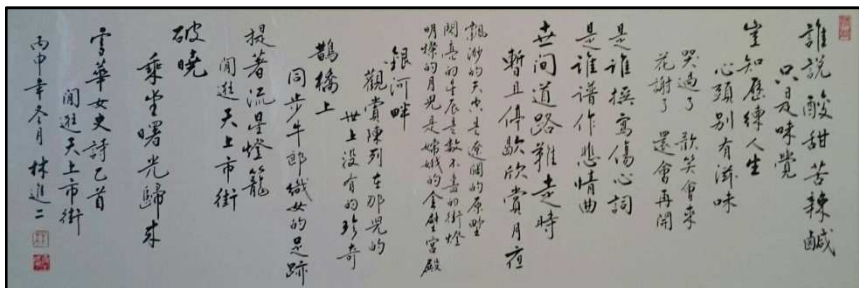 誰說酸甜苦辣鹹
只是味覺
豈知歷練人生
心頭別有滋味
哭過了 歡笑會來
花謝了 還會再開
是誰撰寫傷心詞
是誰譜作悲情曲
世间道路難走時
暫且停歇欣賞月夜
飄渺的天空是遼闊的原野
閃亮的星辰是數不盡的街燈
明燦的月光是嫦娥的金碧宮殿
銀河畔
觀賞陳列在那兒的
世上没有的珍奇
鵲橋上
同步牛郎織女的足跡
提著流星燈籠
閒逛天上市街
破曉
乘坐曙光歸来
雪華女史詩乙首
閒逛天上市街
丙申年冬月 林進二